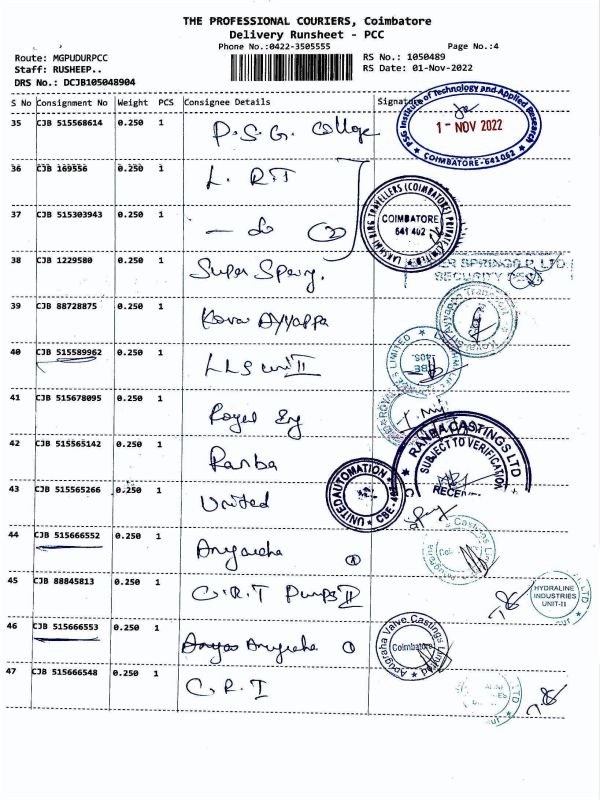 THE PROFESSIONAL COURIERS, Coimbatore
Delivery Runsheet - PCC
Phone No.:0422-3505555
Page No.:4
Route: MGPUDURPCC
RS No.: 1050489
Staff: RUSHEEP..
RS Date: 01-Nov-2022
DRS No.: DCJB105048904
S No Consignment No Weight PCS Consignee Details Signature
PSG Institute of Technology and Applied Research
1 - NOV 2022
COIMBATORE - 641 062
35 CJB 515568614 0.250 1 P.S.G. College
36 CJB 169556 0.250 1 L. R T
37 CJB 515303943 0.250 1 - do (2)
LAKSHMI RING TRAVELLERS (COIMBATORE) PRIVATE LIMITED
COIMBATORE
641 402
38 CJB 1229580 0.250 1 Super Spring.
SPRINGS P. LTD.
SECURITY
39 CJB 88728875 0.250 1 Kovai Ayyappa
40 CJB 515589962 0.250 1 LLS unit II
LIMITED
41 CJB 515678095 0.250 1 Royal Eng
42 CJB 515565142 0.250 1 Ranba
RANBA CASTINGS LTD
SUBJECT TO VERIFICATION
43 CJB 515565266 0.250 1 United
UNITED AUTOMATION
CBE
44 CJB 515666552 0.250 1 Anugraha
45 CJB 88845813 0.250 1 C.R.T Pumps II
HYDRALINE
INDUSTRIES
UNIT-II
46 CJB 515666553 0.250 1 Anugraha
Anugraha Valve Castings Limited
Coimbatore
47 CJB 515666548 0.250 1 C.R.I